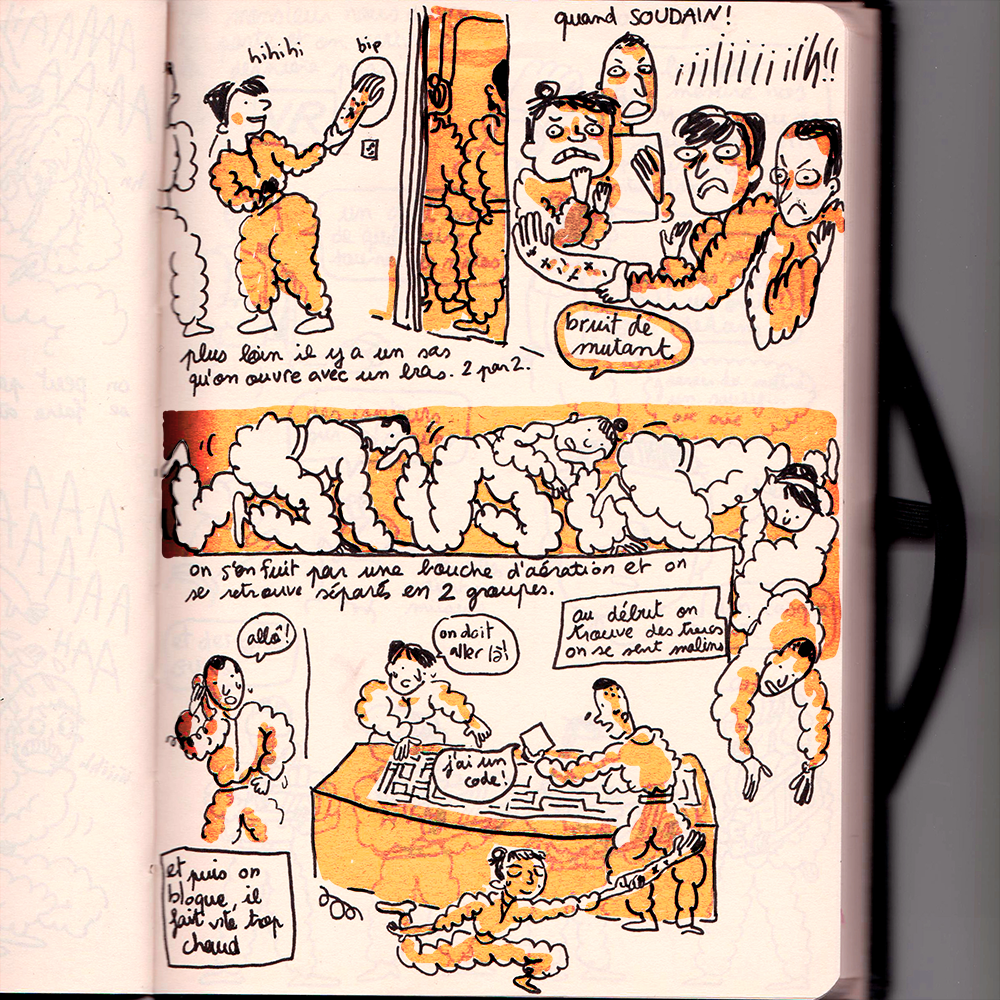 hihihi
bip
plus loin il y a un sas
qu'on ouvre avec un bras. 2 par 2.
quand SOUDAIN!
iiiiiiiiih!!
bruit de
mutant
on s'enfuit par une bouche d'aération et on
se retrouve séparés en 2 groupes.
au début on
trouve des trucs
on se sent malins
allô!
on doit
aller là!
j'ai un
code!
et puis on
bloque, il
fait vite trop
chaud